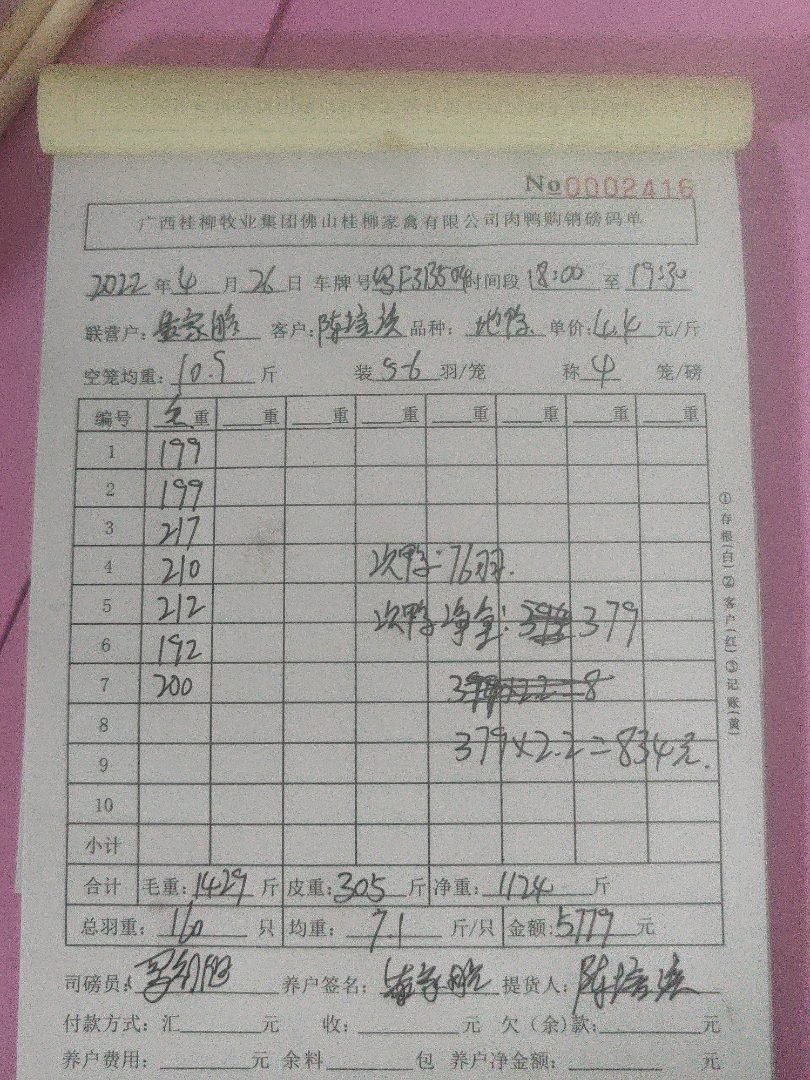 No 0002416
广西桂柳牧业集团佛山桂柳家禽有限公司肉鸭购销磅码单
2022年4月26日 车牌号 时间段18:00至19:30
联营户: 客户:陈 品种: 单价:4.4元/斤
空笼均重:10.9斤 装5-6羽/笼 称4笼/磅
编号 毛重 重 重 重 重 重 重 重
1 199
2 199
3 217
4 210 次鸭:76羽.
5 212 次鸭净重: 379
6 192
7 200
8
9 379×2.2=834元.
10
小计
合计 毛重:1429斤 皮重:305斤 净重:1124斤
总羽重:160只 均重:7.1斤/只 金额:5779元
司磅员: 养户签名: 提货人:陈
付款方式:汇 元 收: 元 欠(余)款: 元
养户费用: 元 余料 包 养户净金额: 元
①存根(白)②客户(红)③记账(黄)